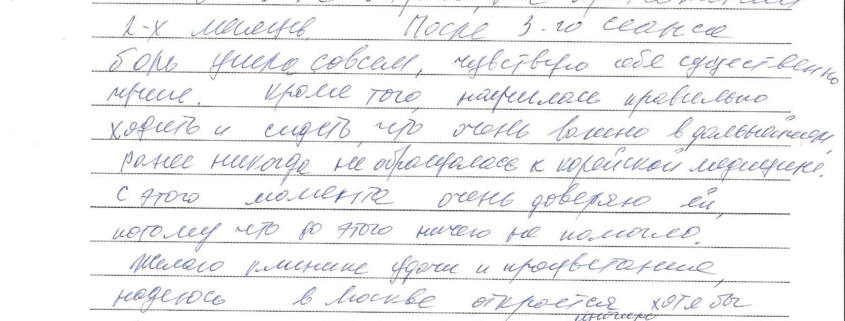 2-х месяцев. После 3-го сеанса
боль ушла совсем, чувствую себя существенно
лучше. Кроме того, научилась правильно
ходить и сидеть, что очень важно в дальнейшем,
ранее никогда не обращалась к корейской медицине.
с этого момента очень доверяю ей,
потому что до этого ничего не помогло.
Желаю клинике удачи и процветания,
надеюсь в Москве откроется хотя бы